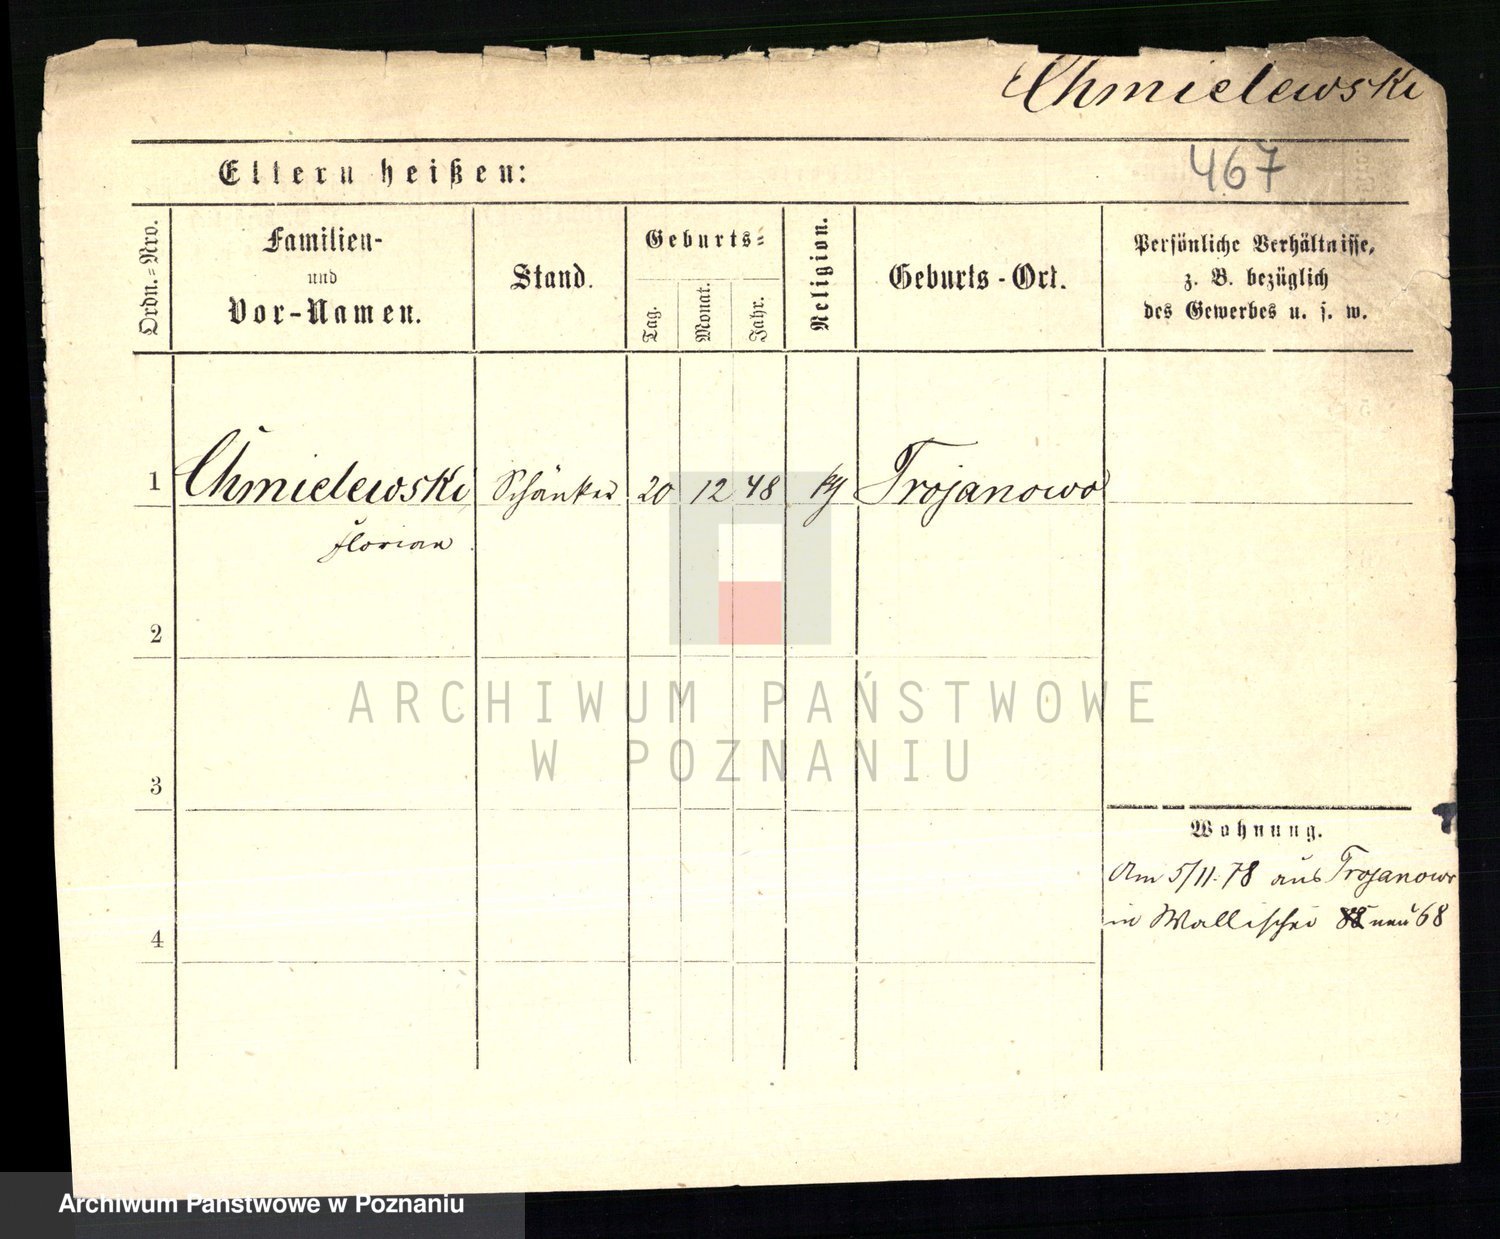 Chmielewski
467
Eltern heißen:
Ordn.=Nro.
Familien-
und
Vor-Namen.
Stand.
Geburts=
Tag.
Monat.
Jahr.
Religion.
Geburts-Ort.
Persönliche Verhältnisse,
z. B. bezüglich
des Gewerbes u. s. w.
1 Chmielewski Schänker 20 12 48 kg Trojanowo
Florian
2
3
4
Wohnung.
Am 5/11. 78 aus Trojanowo
in Wallischei neu 68
ARCHIWUM PAŃSTWOWE
W POZNANIU
Archiwum Państwowe w Poznaniu